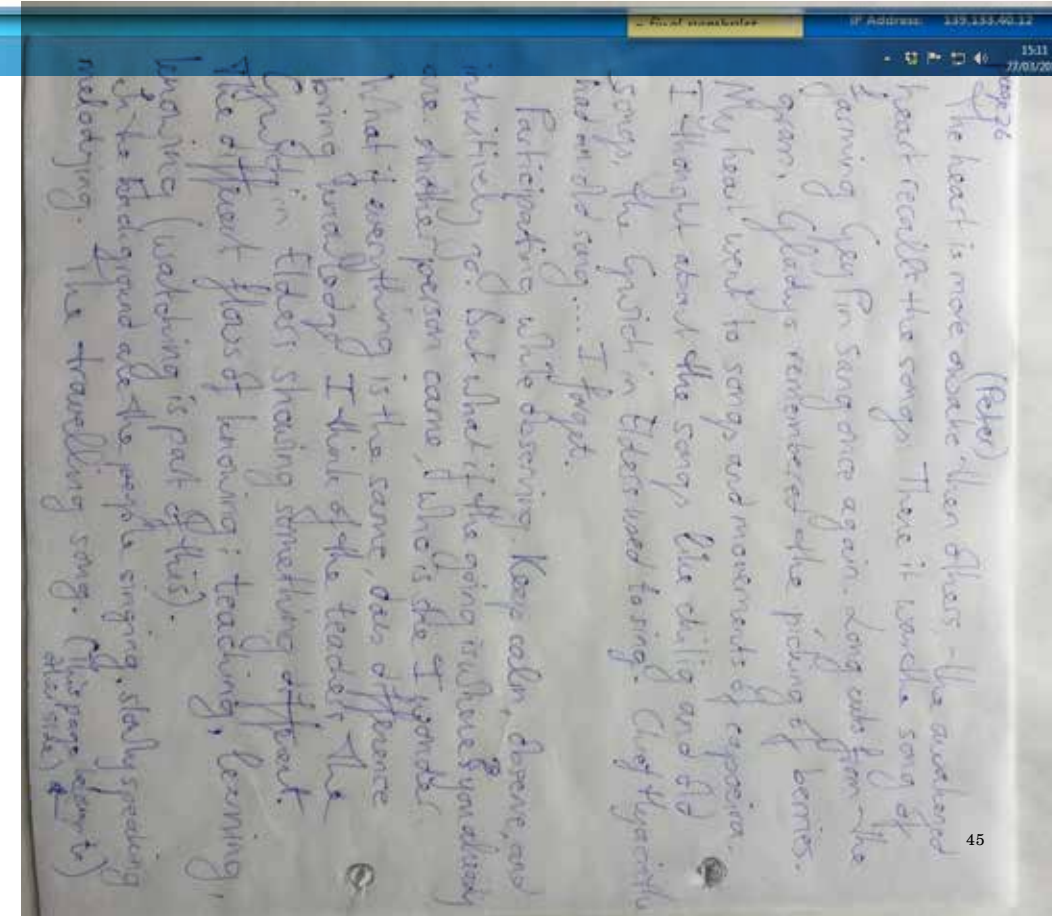 - final
IP Address: 139.133.40.12
15:11
page 26
(Peter)
The heart is more awake then others - the awakened
heart recalls the songs. There it was the song of
Jarming. Grey Pin sang once again. Long cuts from the
gram. Gladys remembered the picking of berries.
My heart went to songs and movements of capoeira.
I thought about the songs like chilig and old
songs, the Gwich'in Elders used to sing. Chief Hyacinthe
had an old song.... I forget.
Participating while observing. Keep calm, observe, and
intuitively go. But what if the going is where you already
are. Another person came, who is the I wonder
What if everything is the same, does difference
bring knowledge I think of the teachers the
Gwich'in Elders showing something different.
The different flows of knowing: teaching, learning,
knowing (watching is part of this).
In the background are the people singing, slowly speaking
melodying. The travelling song. (this page
other side)
45